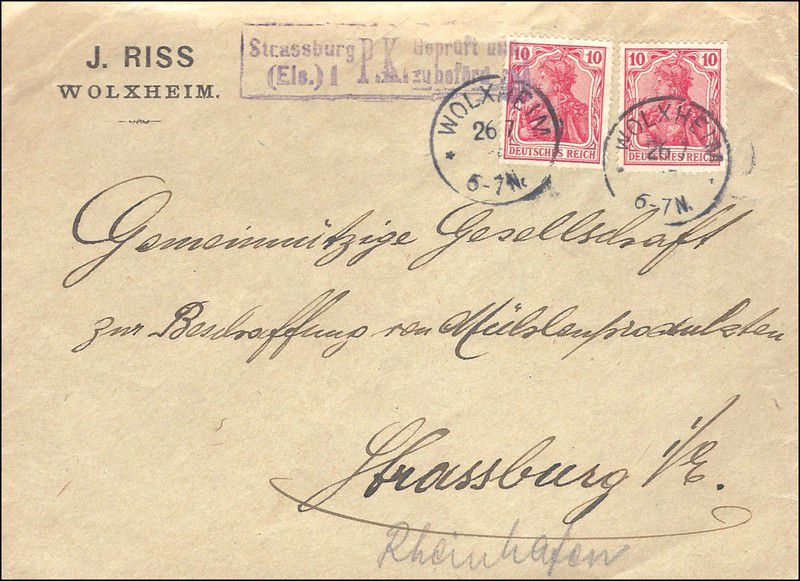 J. RISS
WOLXHEIM.
Strassburg P.K. Geprüft und
(Els.) 1 zu beförd.
10 10
DEUTSCHES REICH
10 10
DEUTSCHES REICH
WOLXHEIM
26 7
6-7N.
WOLXHEIM
26
6-7N.
Gemeinnützige Gesellschaft
zur Beschaffung von Mühlenprodukten
Strassburg i/E.
Rheinhafen